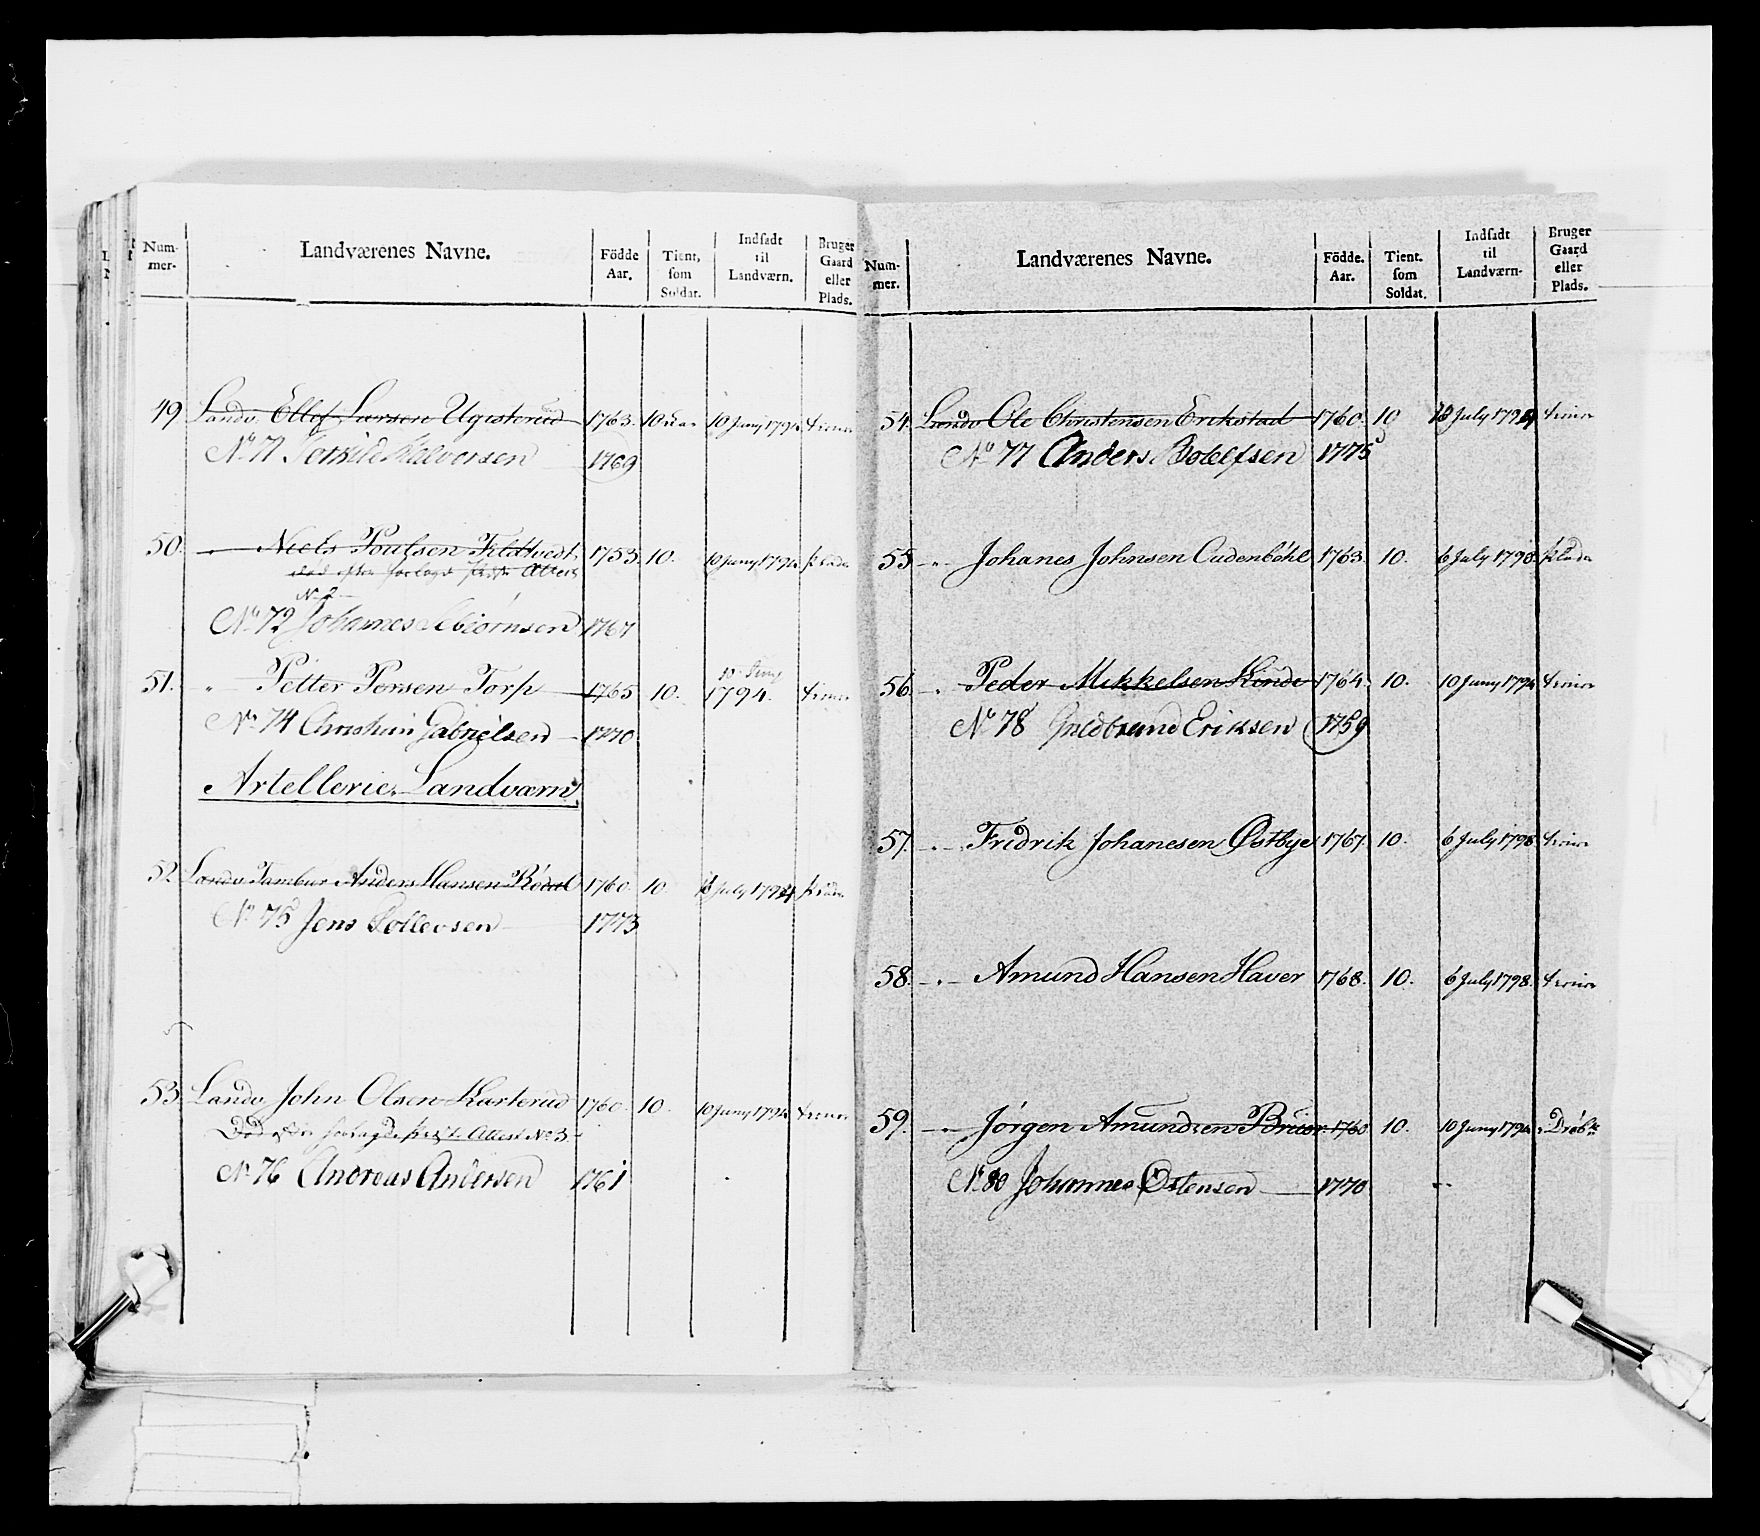 Num-
mer-
Landværenes Navne.
Födde
Aar.
Tient,
som
Soldat.
Indsadt
til
Landværn.
Bruger
Gaard
eller
Plads.
49 Landv Ellef Larsen Ugisterud 1763. 10 10 Juny 1794
No 71 Halvorsen 1769
50. Niels Poulsen 1753 10. 10 Juny 1794
död efter Attest
No 2
No 72 Johannes 1767
51. " Petter Persen Torp 1765 10. 10 Juny 1794.
No 74 Christian Gabrielsen 1770
Artellerie Landværn
52 Landv Tambur Anders Hansen 1760. 10 July 1794
No 75 Jens 1773
53. Landv John Olsen Karterud 1760. 10. 10 Juny 1794
Död efter Attest No 3
No 76 Andreas Andersen 1761
Num-
mer.
Landværenes Navne.
Födde.
Aar.
Tient.
som
Soldat.
Indsadt
til
Landværn-
Bruger
Gaard
eller
Plads.
54. Landv Ole Christensen Erikstad 1760. 10 July 1794
No 77 Anders 1775
55 " Johanes Johnsen 1763. 10. 6 July 1798.
56. " Peder Mikkelsen 1764. 10. 10 Juny 1794
No 78 Guldbrand Eriksen 1759
57. " Fridrik Johanesen Østbye 1767. 10. 6 July 1798
58. " Amund Hansen Haver 1768. 10. 6 July 1798.
59. " Jørgen Amundsen 1760 10. 10 Juny 1794
No 80 Johannes Østensen 1770